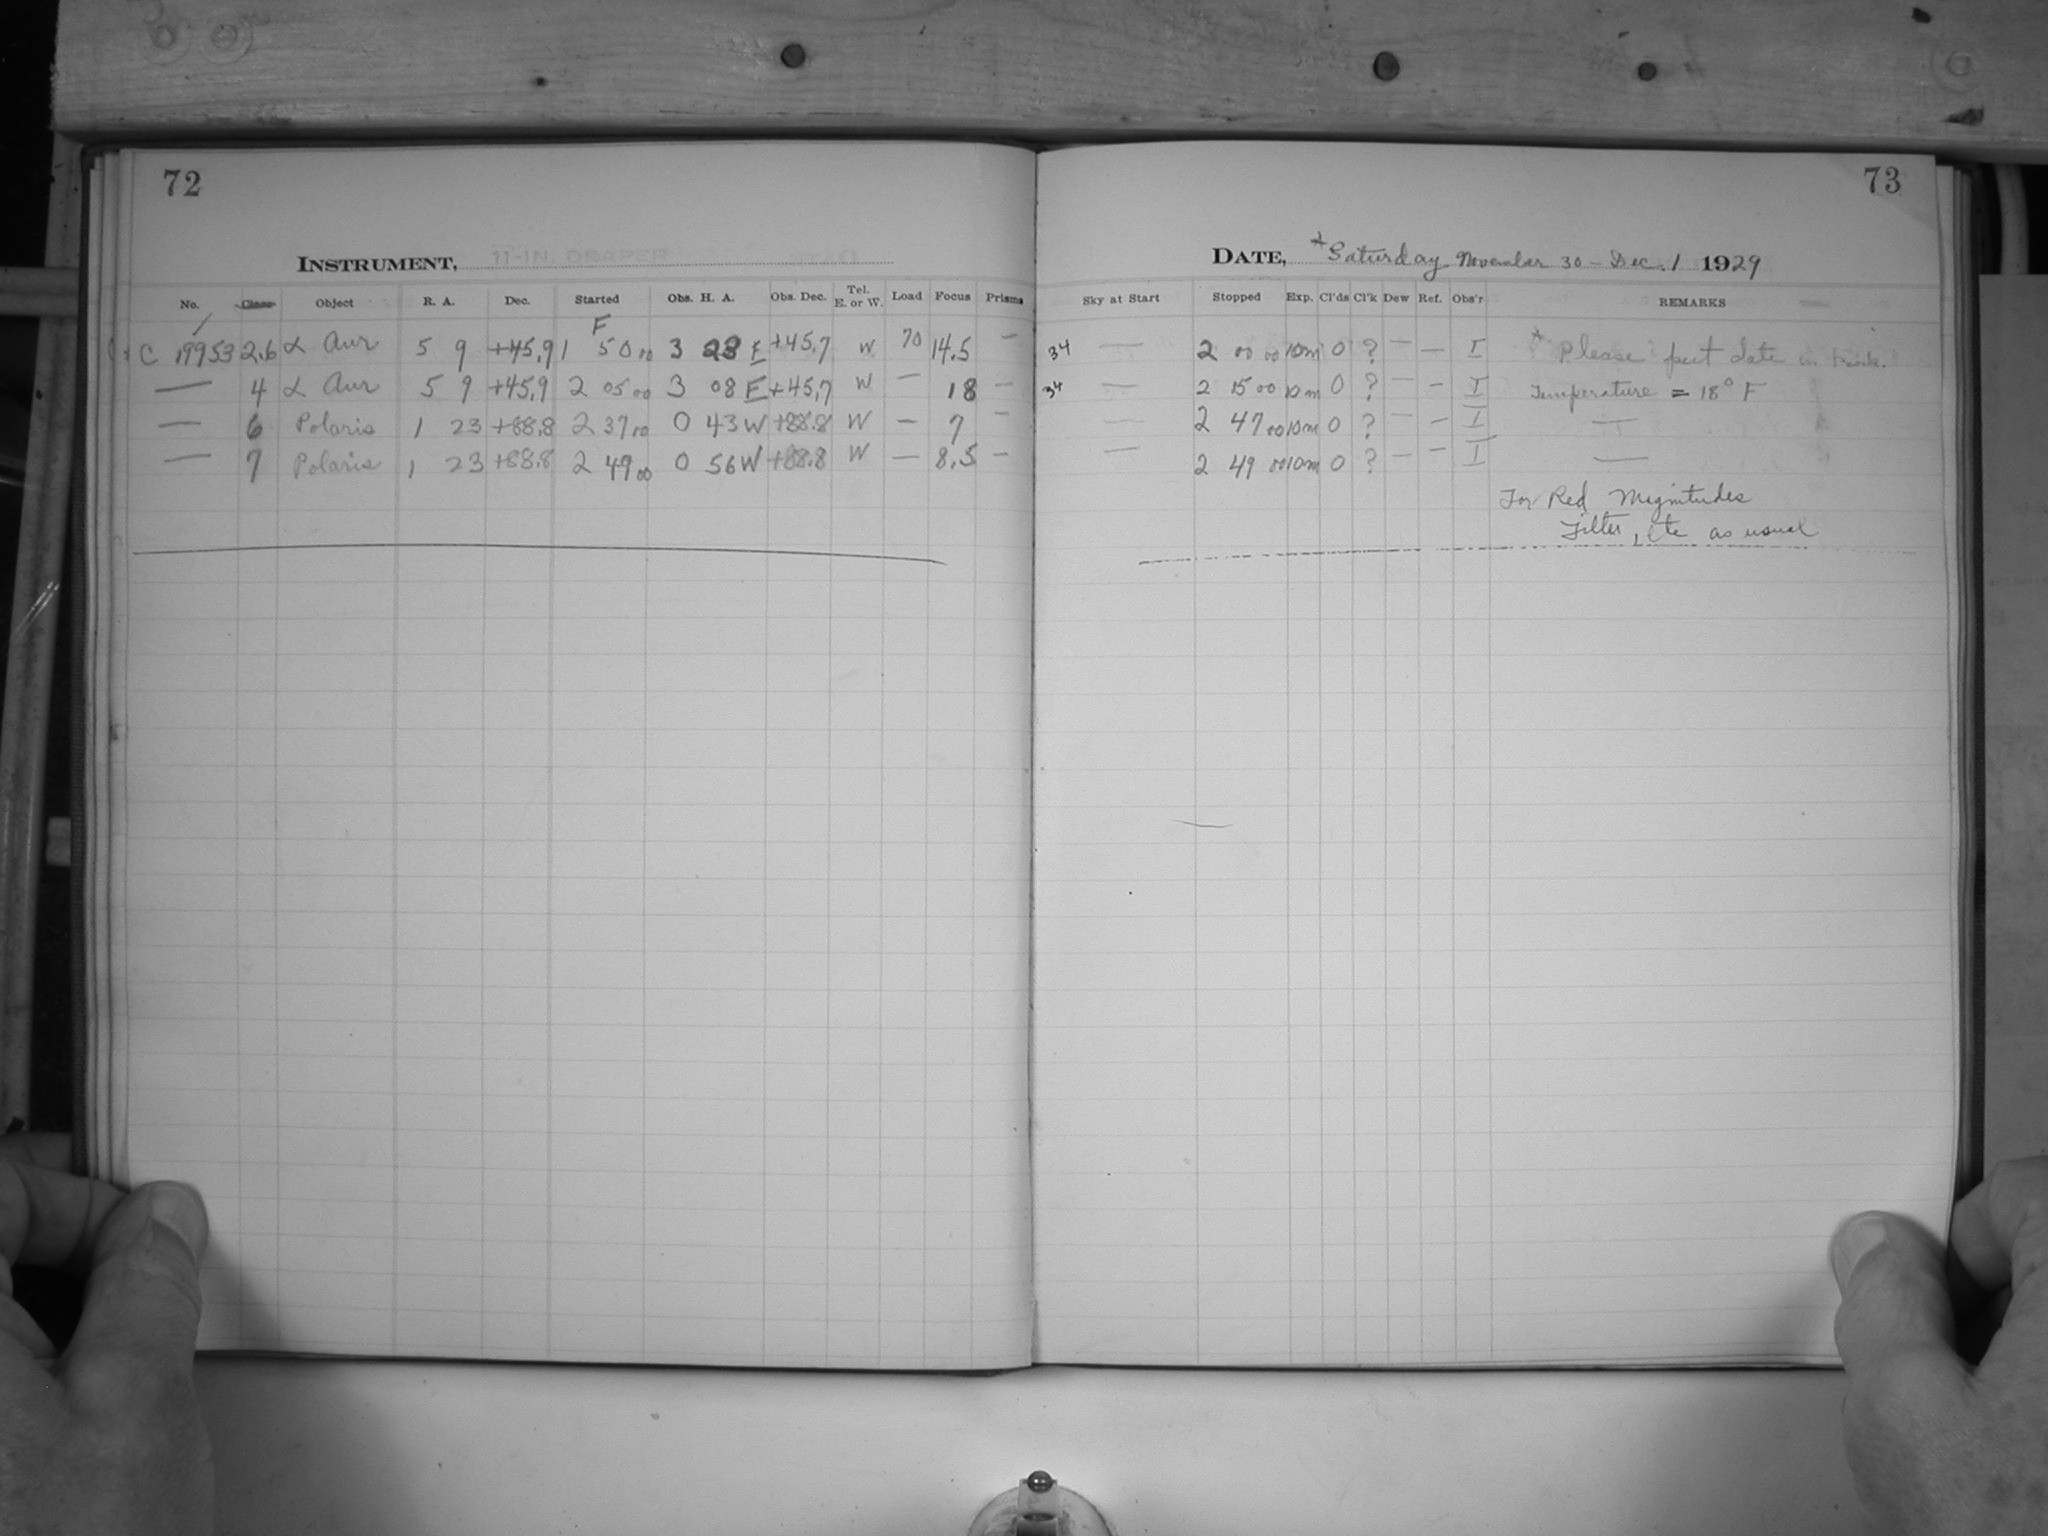 72
INSTRUMENT, 11-IN. DRAPER
No. Class Object R. A. Dec. Started Obs. H. A. Obs. Dec. Tel. E. or W. Load Focus Prisms
F
C 19953 2.6 α Aur 5 9 +45.9 1 50 00 3 23 E +45.7 W 70 14.5 —
— 4 α Aur 5 9 +45.9 2 05 00 3 08 E +45.7 W — 18 —
— 6 Polaris 1 23 +88.8 2 37 00 0 43 W +88.8 W — 7 —
— 7 Polaris 1 23 +88.8 2 49 00 0 56 W +88.8 W — 8.5 —
73
DATE, *Saturday November 30 – Dec. 1 1929
Sky at Start Stopped Exp. Cl'ds Cl'k Dew Ref. Obs'r REMARKS
34 — 2 00 00 10m 0 ? — — I * Please put date in book.
34 — 2 15 00 10m 0 ? — — I Temperature = 18° F
— 2 47 00 10m 0 ? — — I —
— 2 49 00 10m 0 ? — — I —
For Red Magnitudes
Filter, etc as usual